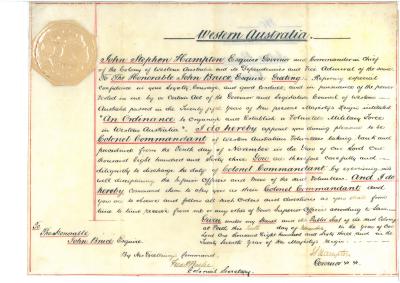 Western Australia.
John Stephen Hampton Esquire Governor and Commander in Chief
of the Colony of Western Australia and its Dependencies and Vice Admiral of the same
To The Honorable John Bruce Esquire Greeting:- Reposing especial
Confidence in your Loyalty, Courage, and good Conduct, and in pursuance of the powers
vested in me by a Certain Act of the Governor and Legislative Council of Western
Australia passed in the Twenty fifth Year of Her present Majesty's Reign intituled
"An Ordinance to Organize and Establish a Volunteer Military Force
in Western Australia". I do hereby appoint you during pleasure to be
Colonel Commandant of Western Australian Volunteers taking Rank and
precedence from the day of November in the Year of Our Lord One
thousand Eight hundred and Sixty three You are therefore carefully and
diligently to discharge the duty of Colonel Commandant by exercising and
well disciplining the Inferior Officers and Men of the said Volunteers. And I do
hereby Command them to obey you as their Colonel Commandant and
you are to observe and follow all such Orders and directions as you shall from
time to time receive from me or any other of your Superior Officers according to Law
Given under my Hand and the Public Seal of the said Colony
at Perth this day of in the Year of Our
Lord One thousand Eight hundred and Sixty three and in the
Twenty Seventh Year of Her Majesty's Reign
To
The Honorable
John Bruce Esquire
By His Excellency's Command,
Colonial Secretary.
J Hampton
Governor